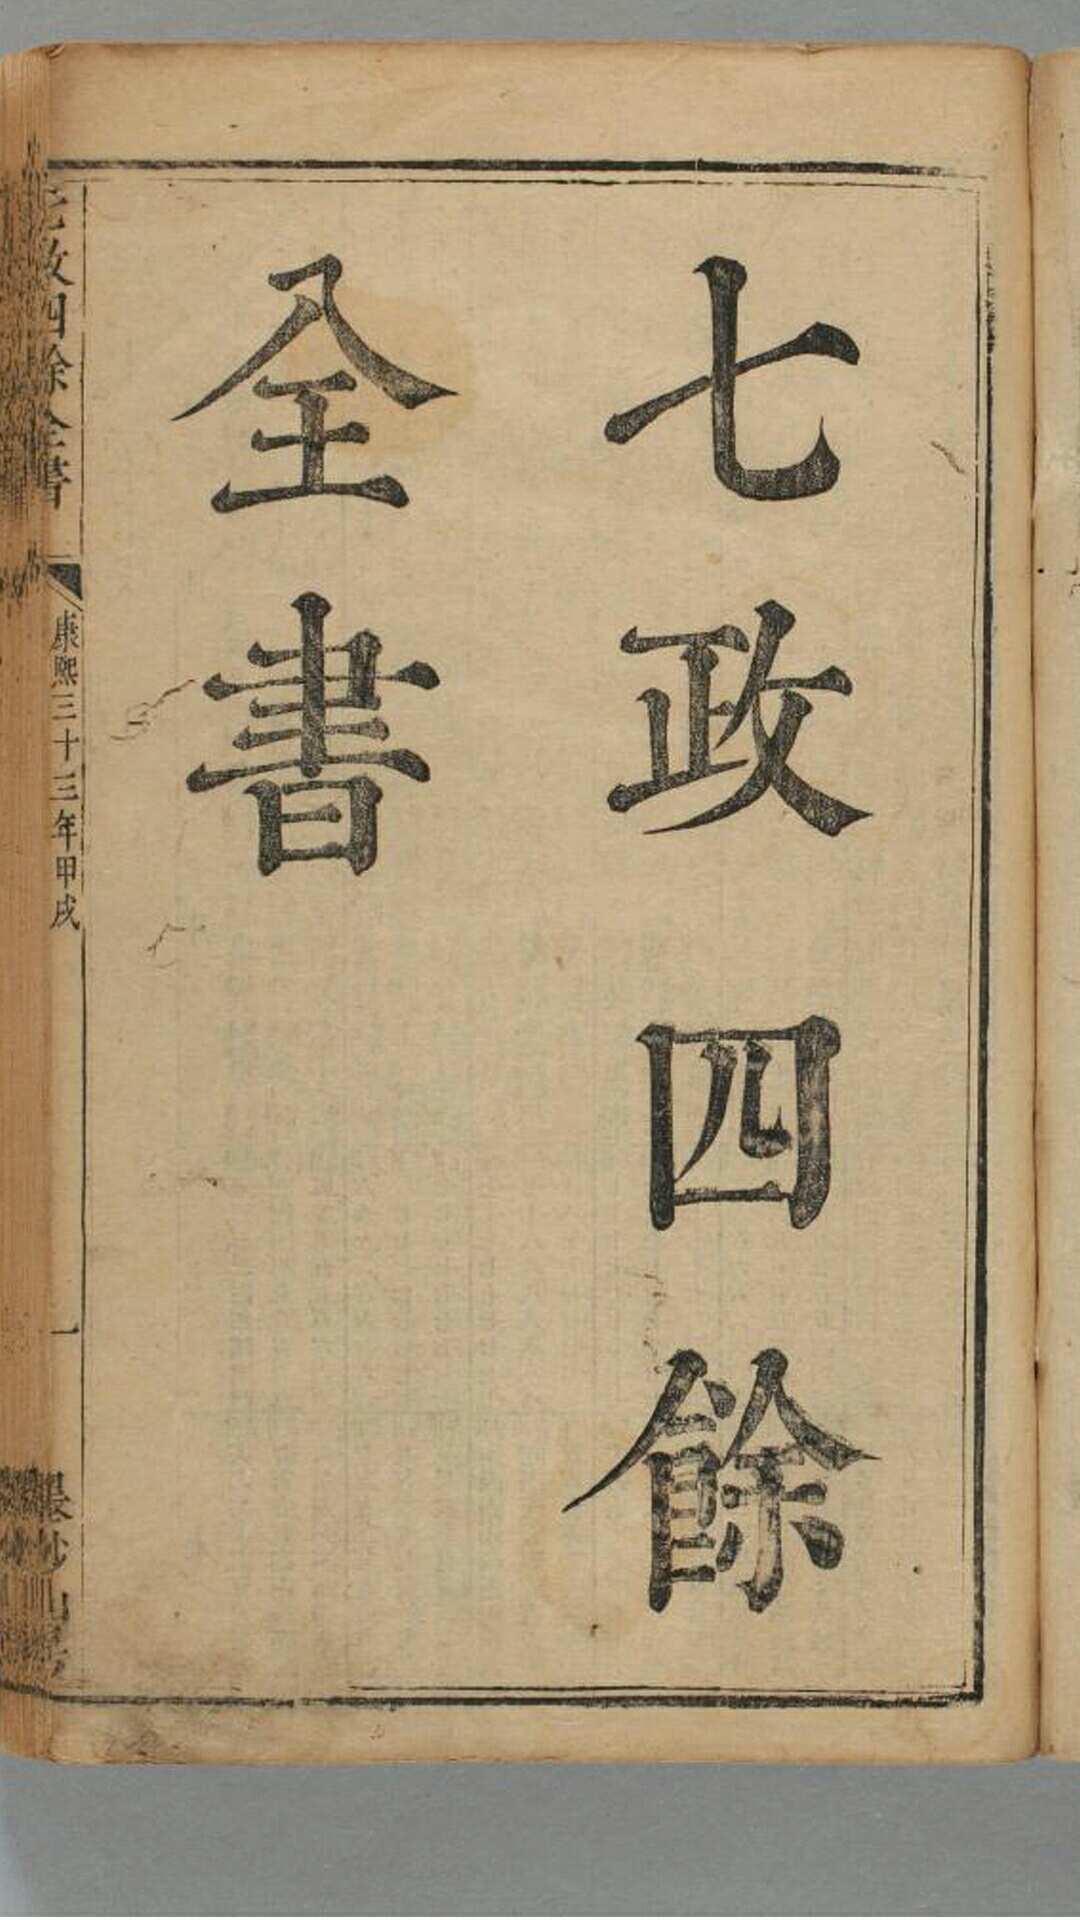 七政四餘
全書
七政四餘全書
康熙三十三年甲戌
一